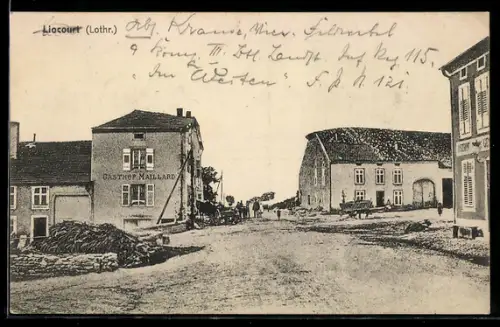 Liocourt (Lothr.)
Abs. Krause, Vier. Feldrebel
9 Komp. III. Btl. Landst. Inf. Reg. 115.
"Im Westen". F. P. N. 121
GASTHOF MAILLARD